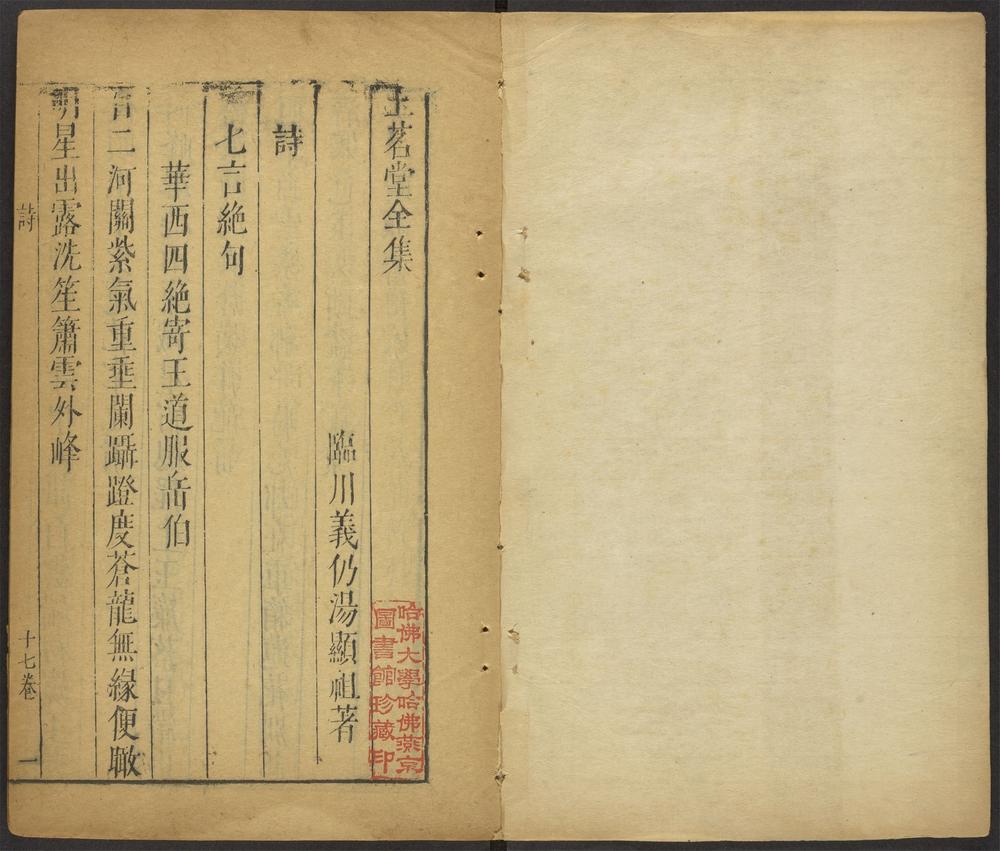 玉茗堂全集
臨川義仍湯顯祖著
詩
七言絶句
華西四絶寄王道服岳伯
百二河關紫氣重埀闌躡蹬度蒼龍無緣便瞰
明星出露洗笙簫雲外峰
詩
十七卷
一
哈佛大學哈佛燕京
圖書館珍藏印